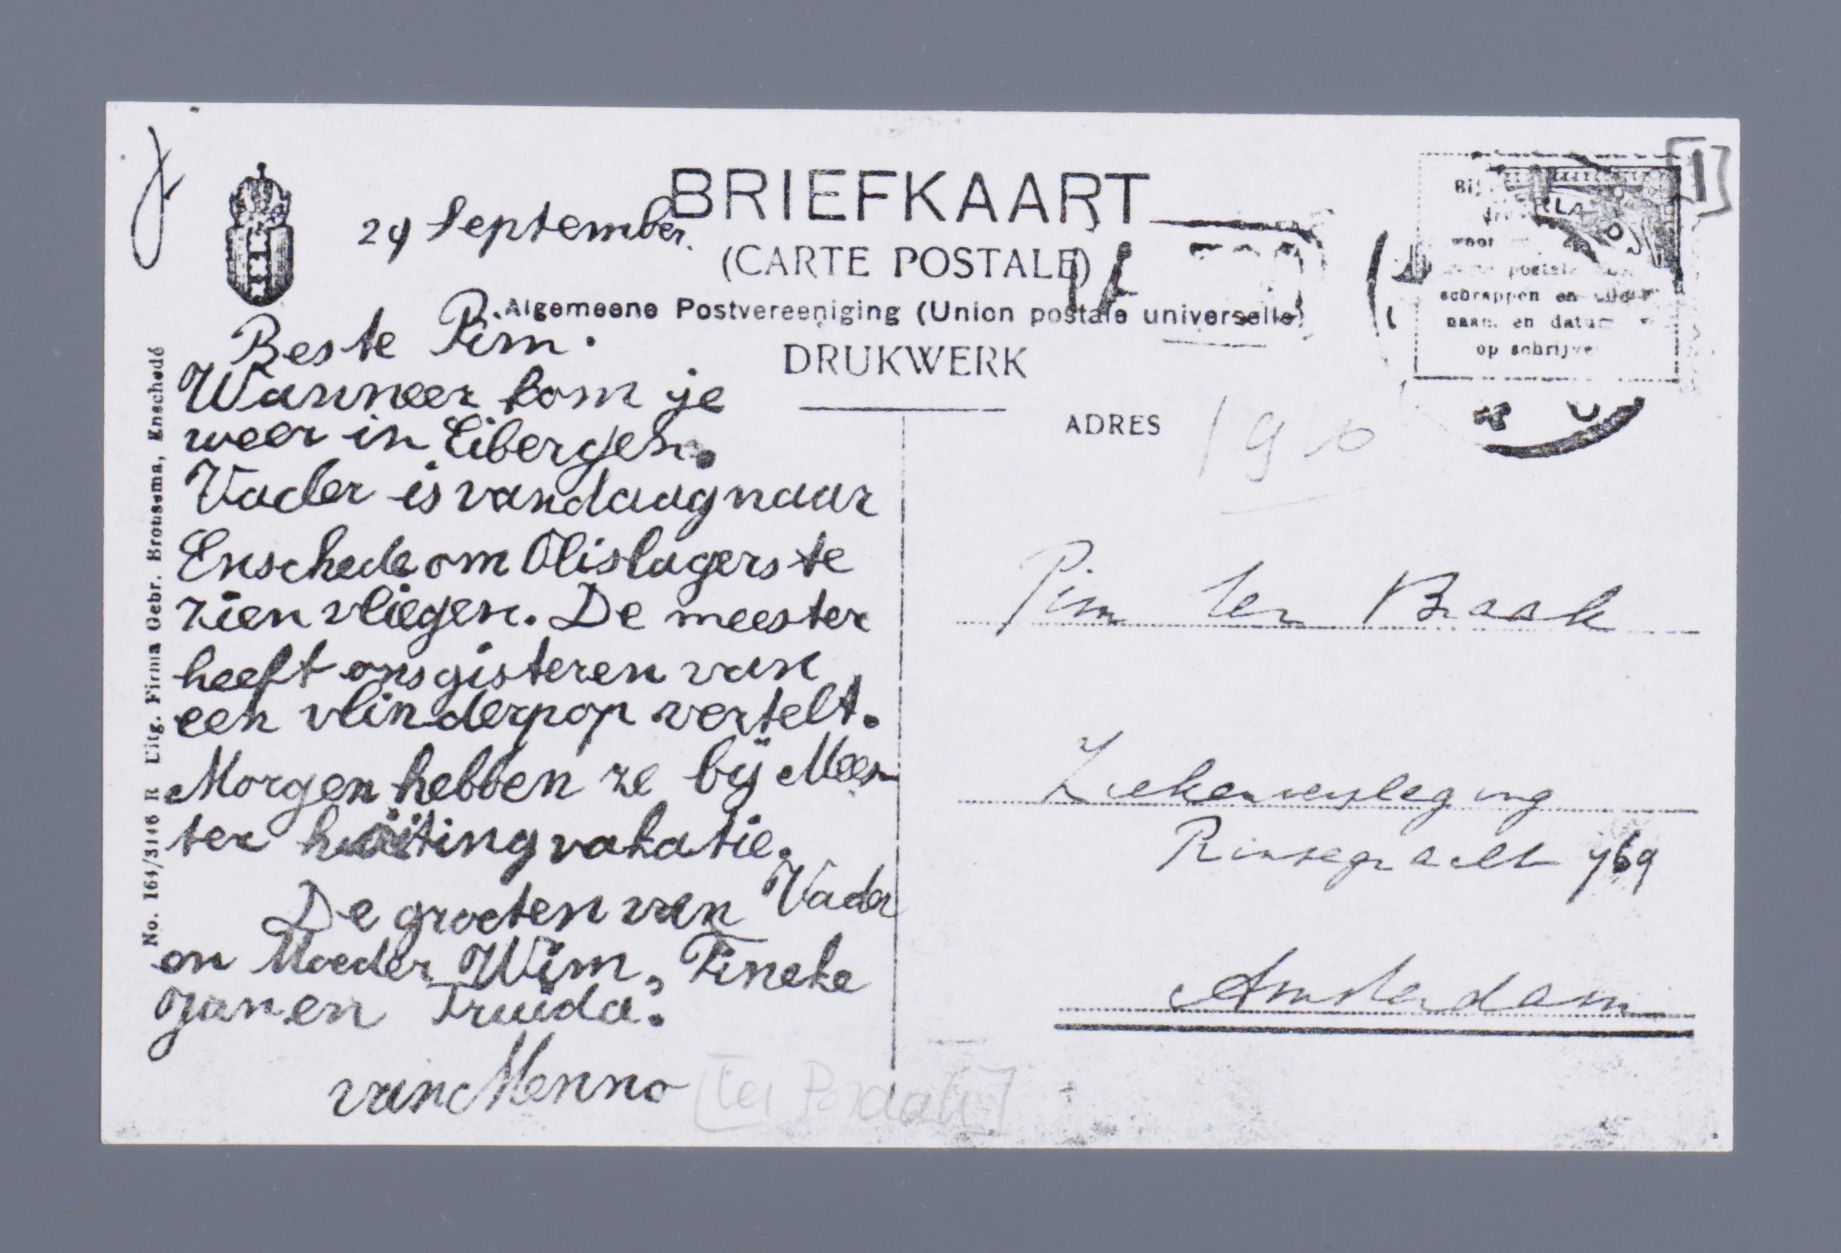 BRIEFKAART
(CARTE POSTALE)
Algemeene Postvereeniging (Union postale universelle)
DRUKWERK
ADRES
1910
[1]
postale
schrappen en
naam en datum
op schrijven
No. 164/3116 R Uitg. Firma Gebr. Brousema, Enschedé
29 September.
Beste Pim.
Wanneer kom je
weer in Eibergen.
Vader is vandaag naar
Enschede om Olislagers te
zien vliegen. De meester
heeft ons gisteren van
een vlinderpop vertelt.
Morgen hebben ze bij Mees-
ter vakatie.
De groeten van Vader
en Moeder Wim, Tineke
Jan en Truida.
van Menno
[ter Braak]
Pim ter Braak
Ziekenverpleging
Prinsegracht 769
Amsterdam